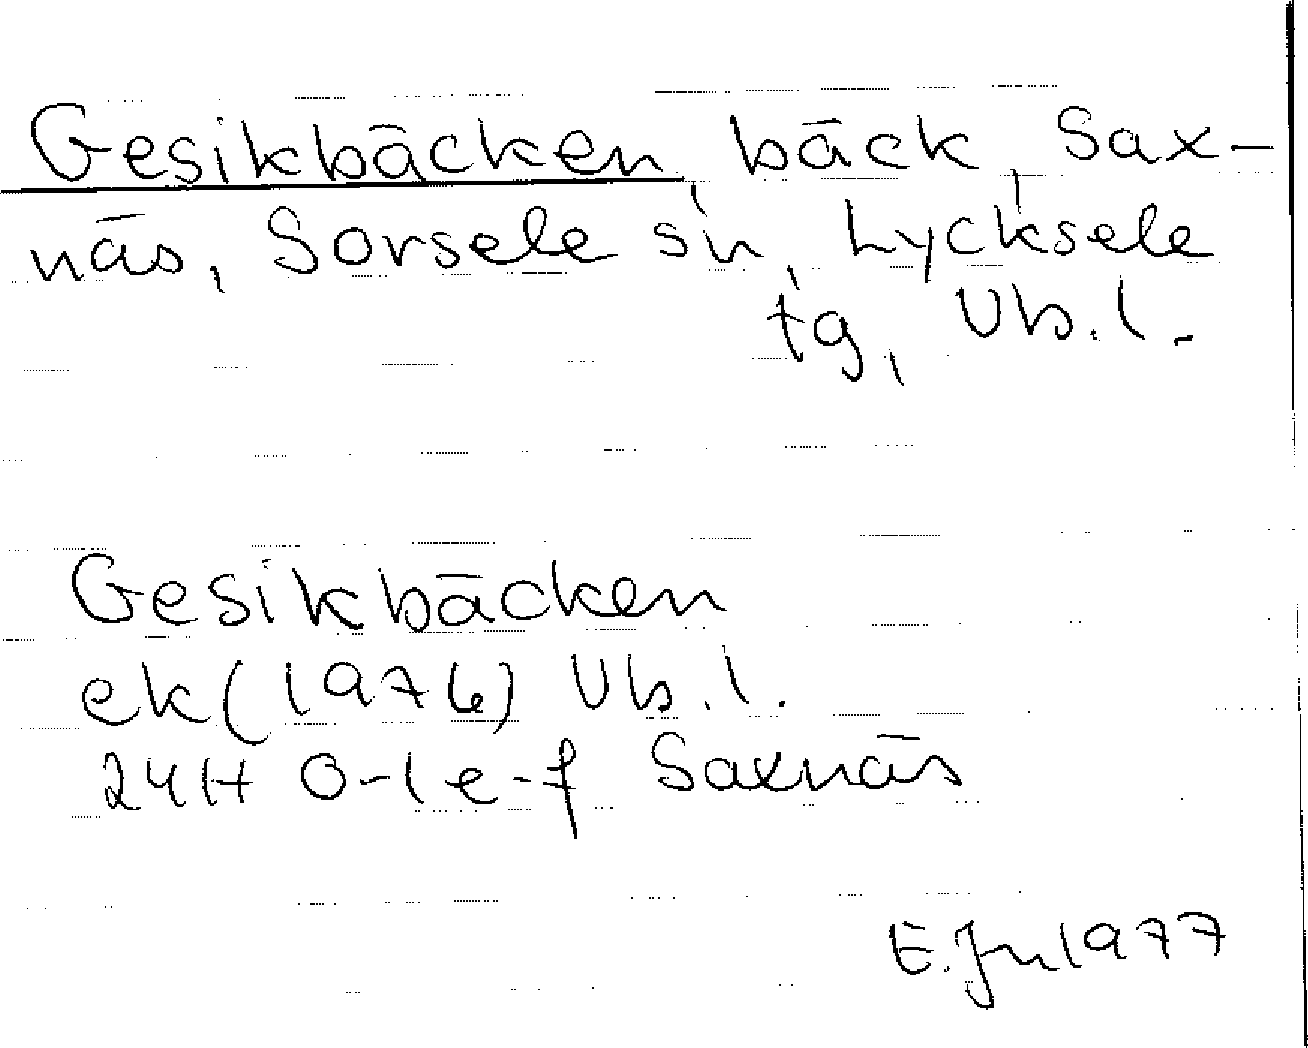 Gesikbäcken, bäck, Sax-
näs, Sorsele sn, Lycksele
tg, Vb. l.
Gesikbäcken
ek (1976) Vb. l.
24H 0-1 e-f Saxnäs
E. Jn 1977